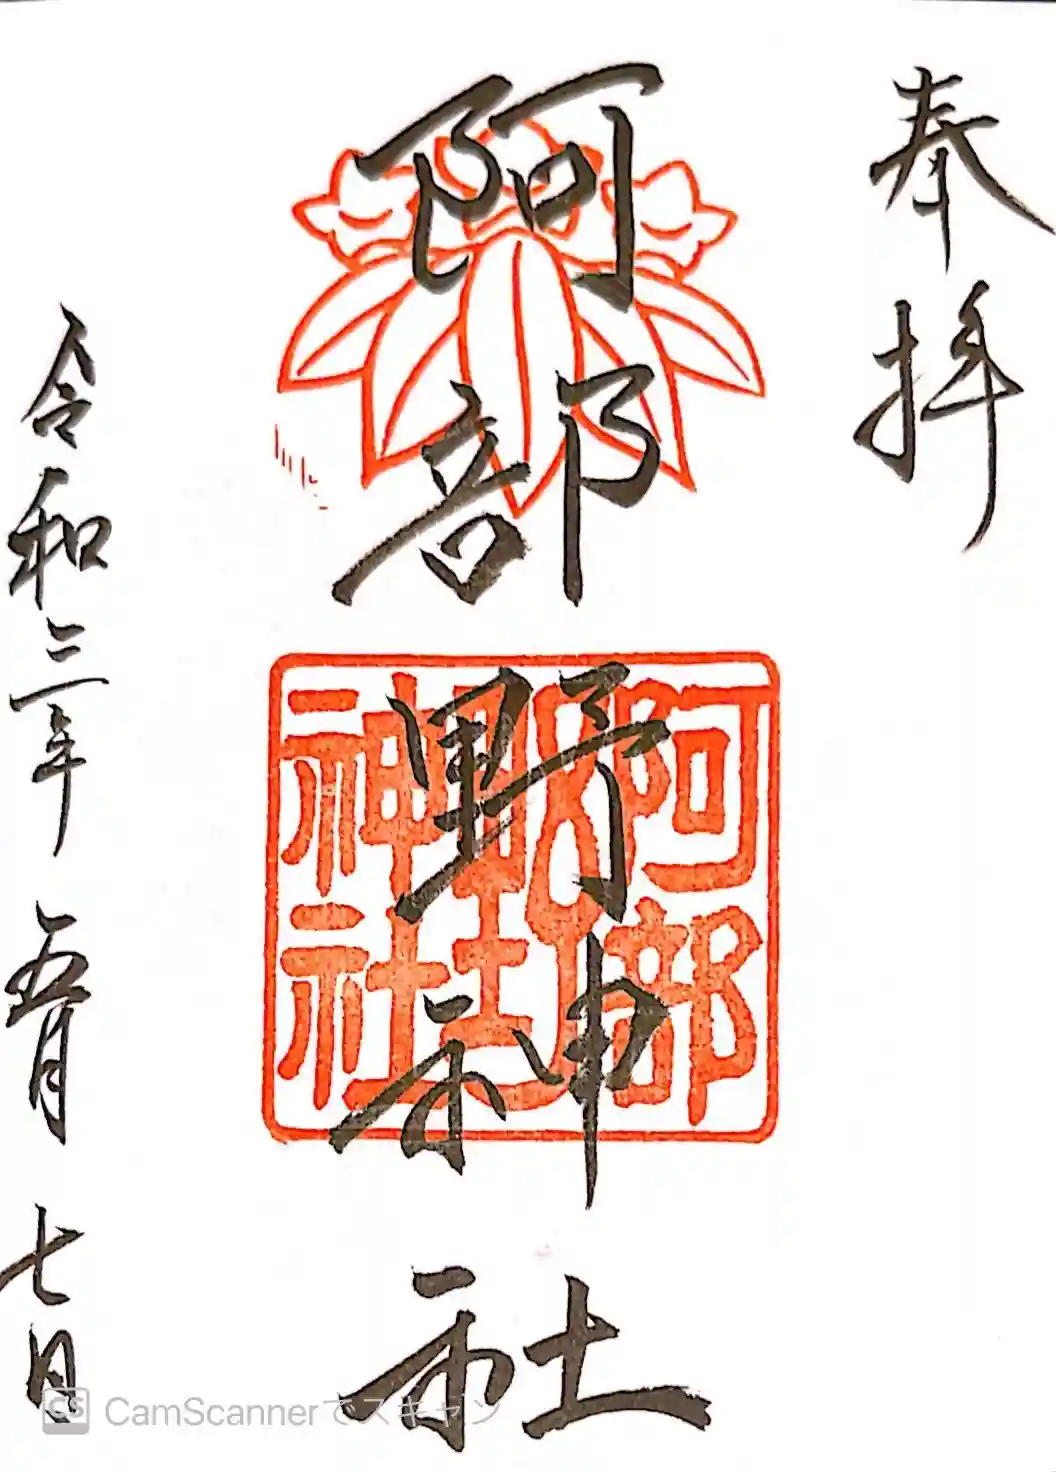 奉拝
阿部野神社
阿部野神社
令和三年五月七日
CS CamScannerでスキャン